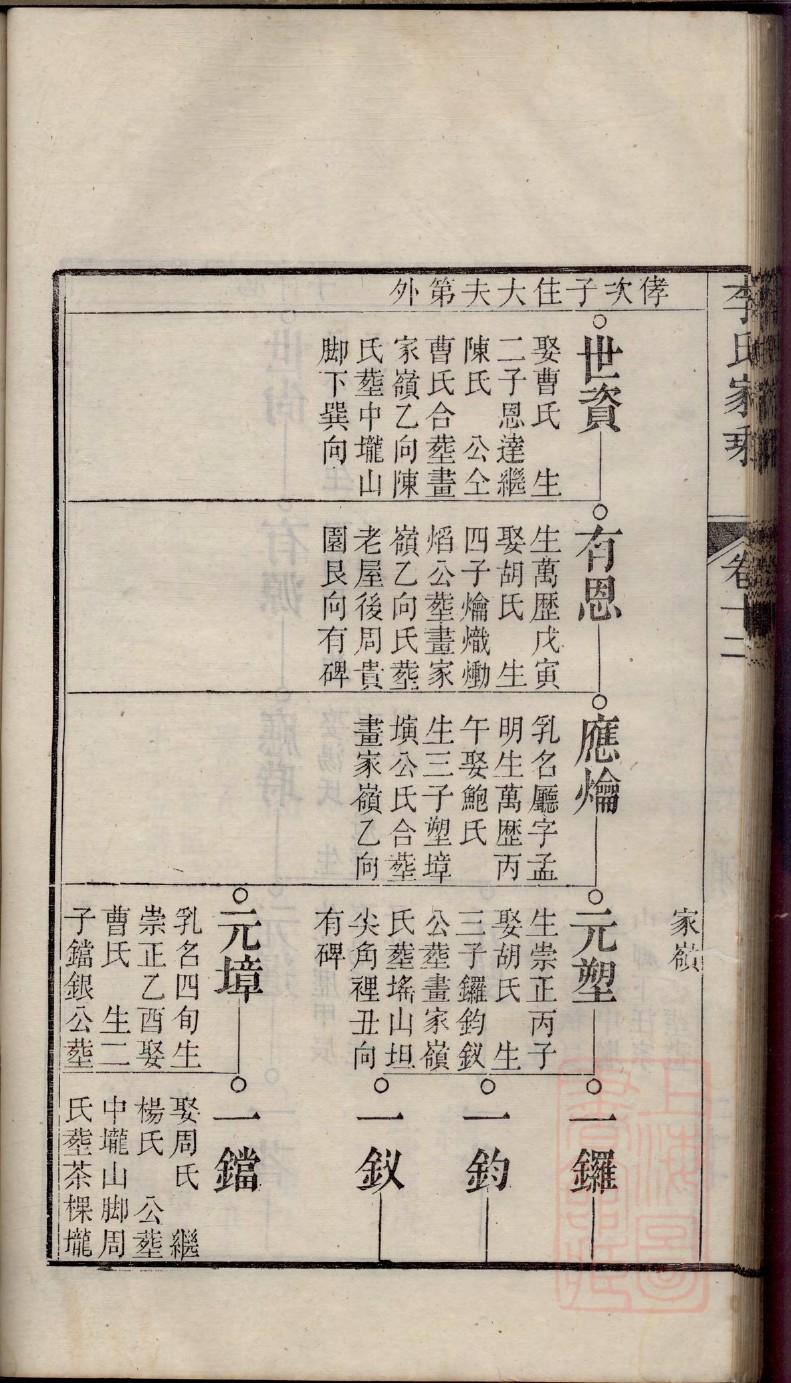 李氏家乘
卷十二
家嶺
侾次子住大夫第外
世資
娶曹氏　生
二子恩達繼
陳氏　公仝
曹氏合塟畫
家嶺乙向陳
氏塟中壠山
脚下巽向
有恩
生萬歷戊寅
娶胡氏　生
四子爚熾㷲
熖公塟畫家
嶺乙向氏塟
老屋後周貴
園艮向有碑
應爚
乳名廳字孟
明生萬歷丙
午娶鮑氏
生三子塑墇
墴公氏合塟
畫家嶺乙向
元塑
生崇正丙子
娶胡氏　生
三子鑼鈞釵
公塟畫家嶺
氏塟塔山坦
尖角裡丑向
有碑
一鑼
一鈞
一釵
元墇
乳名四旬生
崇正乙酉娶
曹氏　生二
子鐺銀公塟
一鐺
娶周氏　繼
楊氏　公塟
中壠山脚周
氏塟茶棵壠